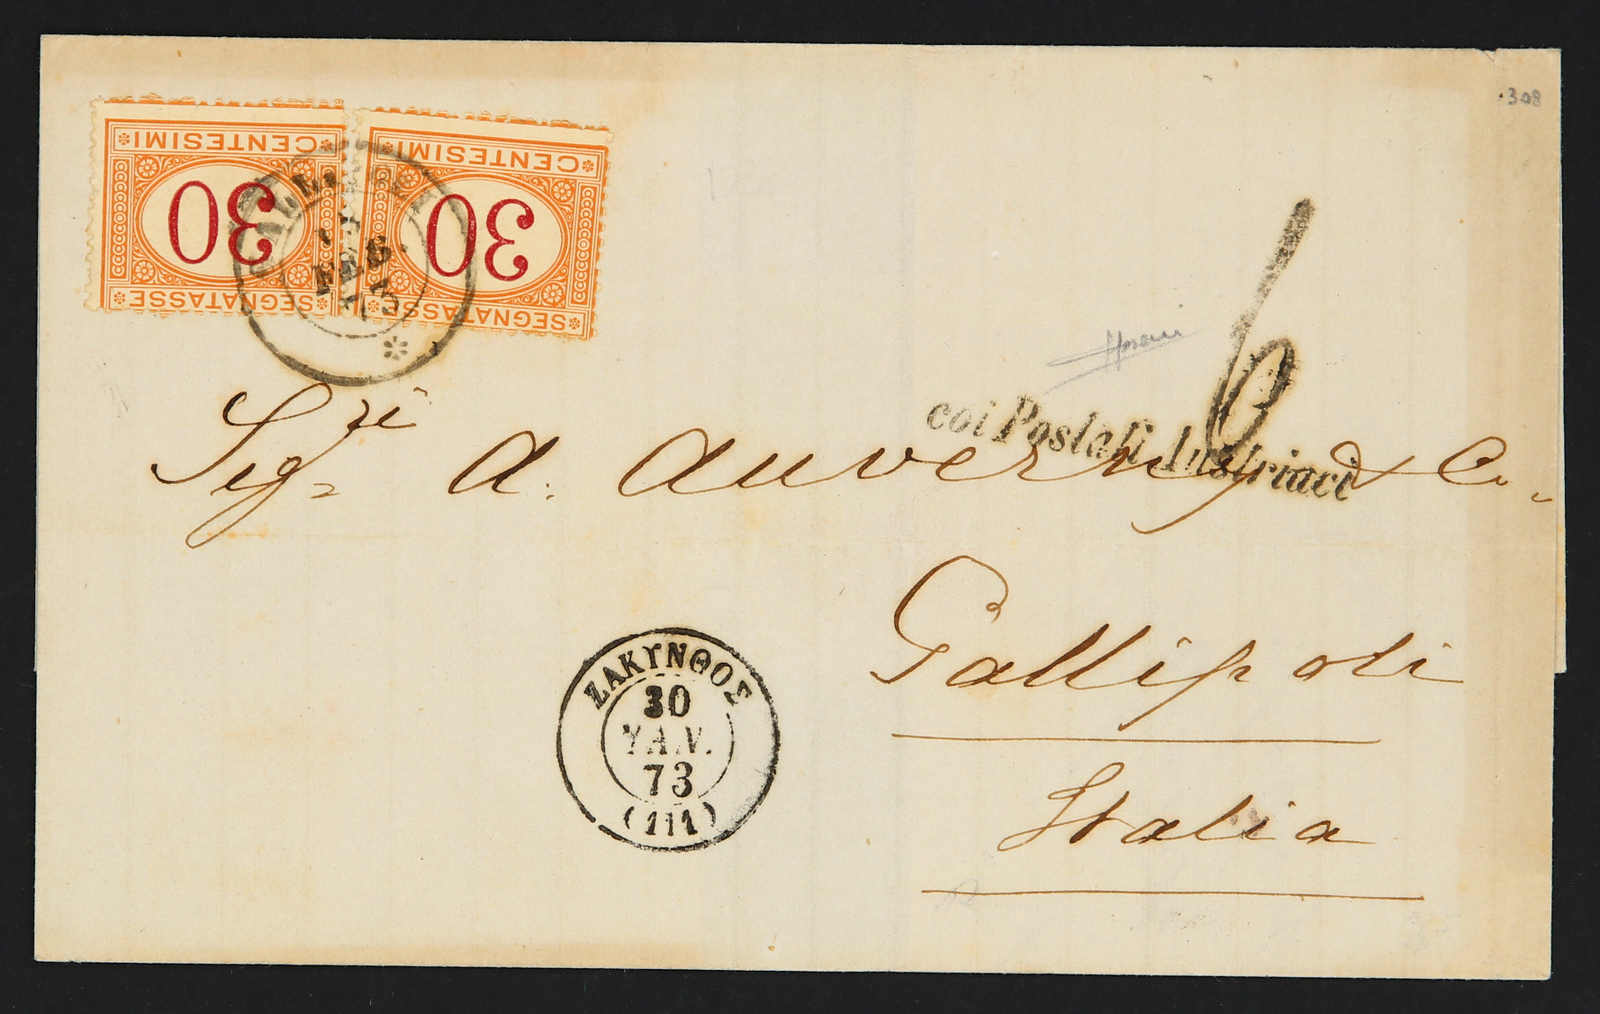 308
CENTESIMI
30
SEGNATASSE
CENTESIMI
30
SEGNATASSE
FEB.
73
6
coi Postali Austriaci
Sigri A. Auverny & Co.
Gallipoli
Italia
ΖΑΚΥΝΘΟΣ
30
ΥΑΝ.
73
(111)